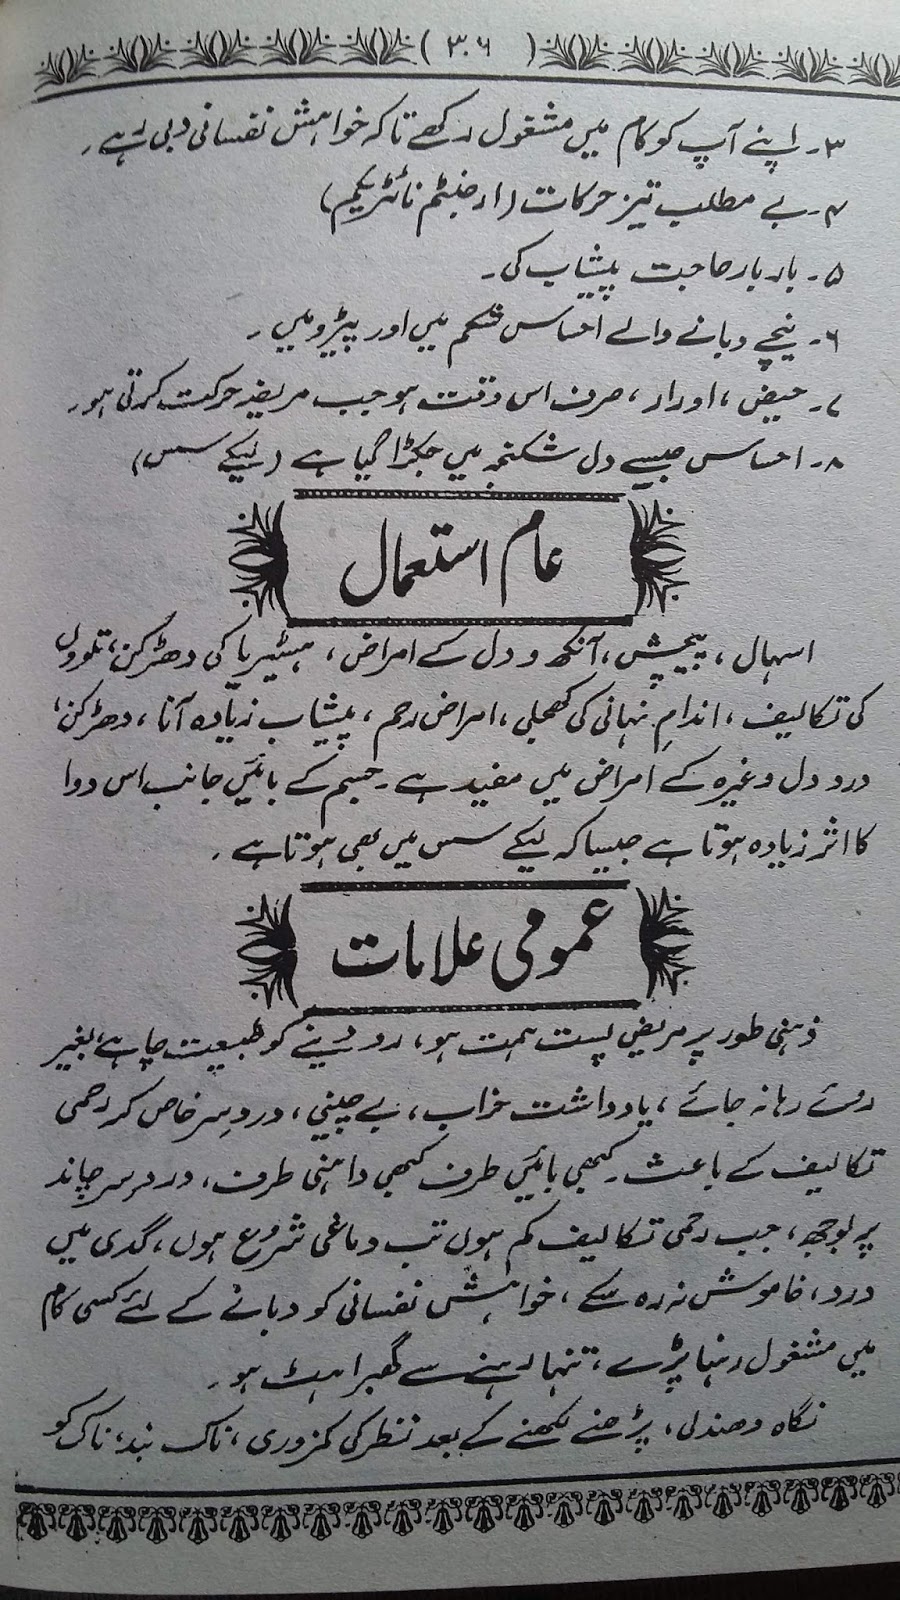 (۳۰۶)
۳۔ اپنے آپ کو کام میں مشغول رکھے تاکہ خواہش نفسانی دبی رہے۔
۴۔ بے مطلب تیز حرکات (ارجنٹم نائٹریکم)
۵۔ بار بار حاجت پیشاب کی۔
۶۔ نیچے دبانے والے احساس شکم میں اور پیڑو میں۔
۷۔ حیض، ادرار، صرف اس وقت ہو جب مریضہ حرکت کرتی ہو۔
۸۔ احساس جیسے دل شکنجہ میں جکڑا گیا ہے (لیکے سس)
عام استعمال
اسہال، پیچش، آنکھ و دل کے امراض، ہسٹیریا کی دھڑکن، تلووں
کی تکالیف، اندامِ نہانی کی کھجلی، امراض رحم، پیشاب زیادہ آنا، دھڑکن،
درد دل وغیرہ کے امراض میں مفید ہے۔ جسم کے بائیں جانب اس دوا
کا اثر زیادہ ہوتا ہے جیسا کہ لیکے سس میں بھی ہوتا ہے۔
عمومی علامات
ذہنی طور پر مریض پست ہمت ہو، رو دینے کو طبیعت چاہے، بغیر
روئے رہا نہ جائے، یادداشت خراب، بے چینی، دردِ سر خاص کر رحمی
تکالیف کے باعث۔ کبھی بائیں طرف کبھی داہنی طرف، درد سر چاند
پر بوجھ، جب رحمی تکالیف کم ہوں تب دماغی شروع ہوں، گدی میں
درد، خاموش نہ رہ سکے، خواہش نفسانی کو دبانے کے لئے کسی کام
میں مشغول رہنا پڑے، تنہا رہنے سے گھبراہٹ ہو۔
نگاہ دھندلی، پڑھنے لکھنے کے بعد نظر کی کمزوری، ناک بند، ناک کو